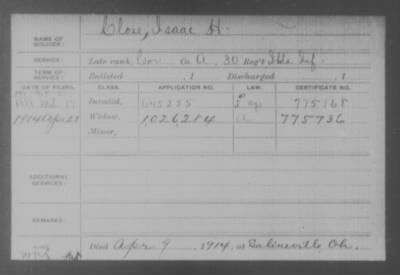 Close, Isaac H.
NAME OF SOLDIER:
SERVICE: Late rank, Co. A, 30 Reg't Inf.
TERM OF SERVICE: Enlisted , 1 Discharged , 1
DATE OF FILING. CLASS. APPLICATION NO. LAW. CERTIFICATE NO.
Invalid, 775168
1914 Apr 28 Widow, 1,026,284 775736
Minor,
ADDITIONAL SERVICES:
REMARKS:
Died Apr 9, 1914, at Salineville, Oh.